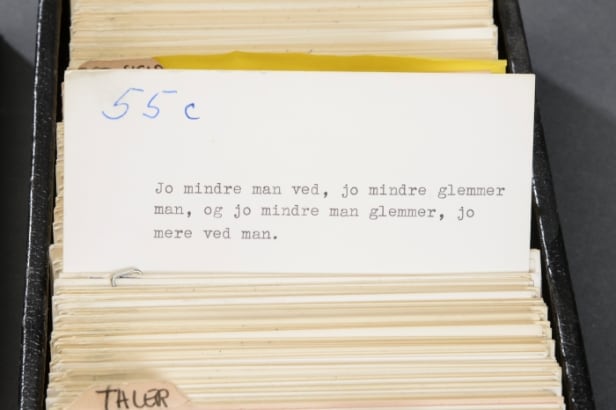 55c
Jo mindre man ved, jo mindre glemmer
man, og jo mindre man glemmer, jo
mere ved man.
TALER